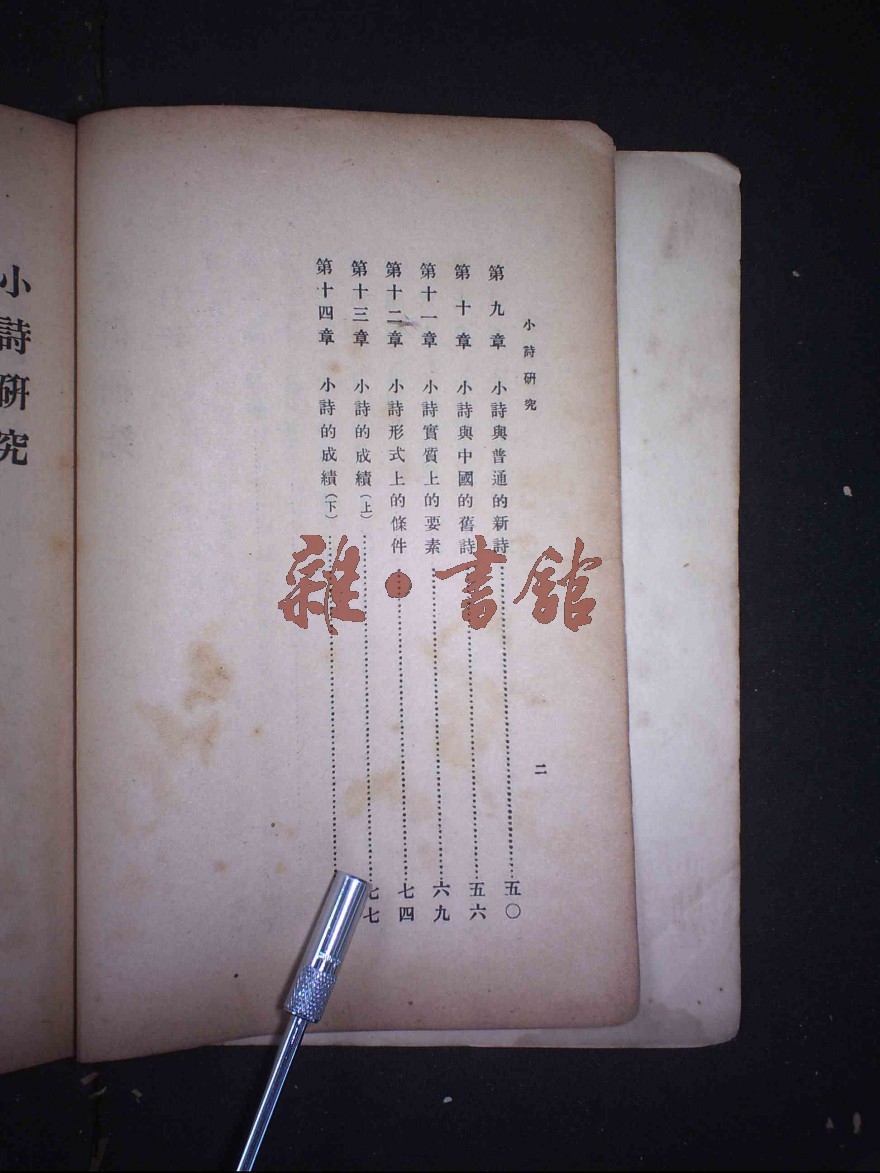 小詩研究
二
第九章 小詩與普通的新詩……五〇
第十章 小詩與中國的舊詩……五六
第十一章 小詩實質上的要素……六九
第十二章 小詩形式上的條件……七四
第十三章 小詩的成績(上)……七七
第十四章 小詩的成績(下)……
小詩研究
雜•書館